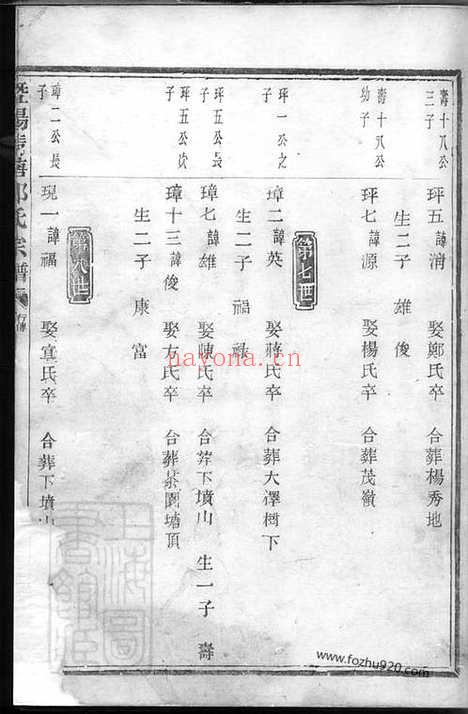 壽十八公三子
坪五諱淸 娶鄭氏卒 合葬楊秀地
生二子 雄 俊
壽十八公幼子
坪七諱源 娶楊氏卒 合葬茂嶺
第七世
坪一公之子
璋二諱英 娶蔣氏卒 合葬大澤樹下
生二子 福 祿
坪五公長子
璋七諱雄 娶陳氏卒 合葬下墳山 生一子 壽
坪五公次子
璋十三諱俊 娶方氏卒 合葬茶園塘頂
生二子 康 富
第八世
璋二公長子
現一諱福 娶宣氏卒 合葬下墳山
暨陽 氏宗譜
行傳
上海圖書館藏
nayona.cn
www.fozhu920.com